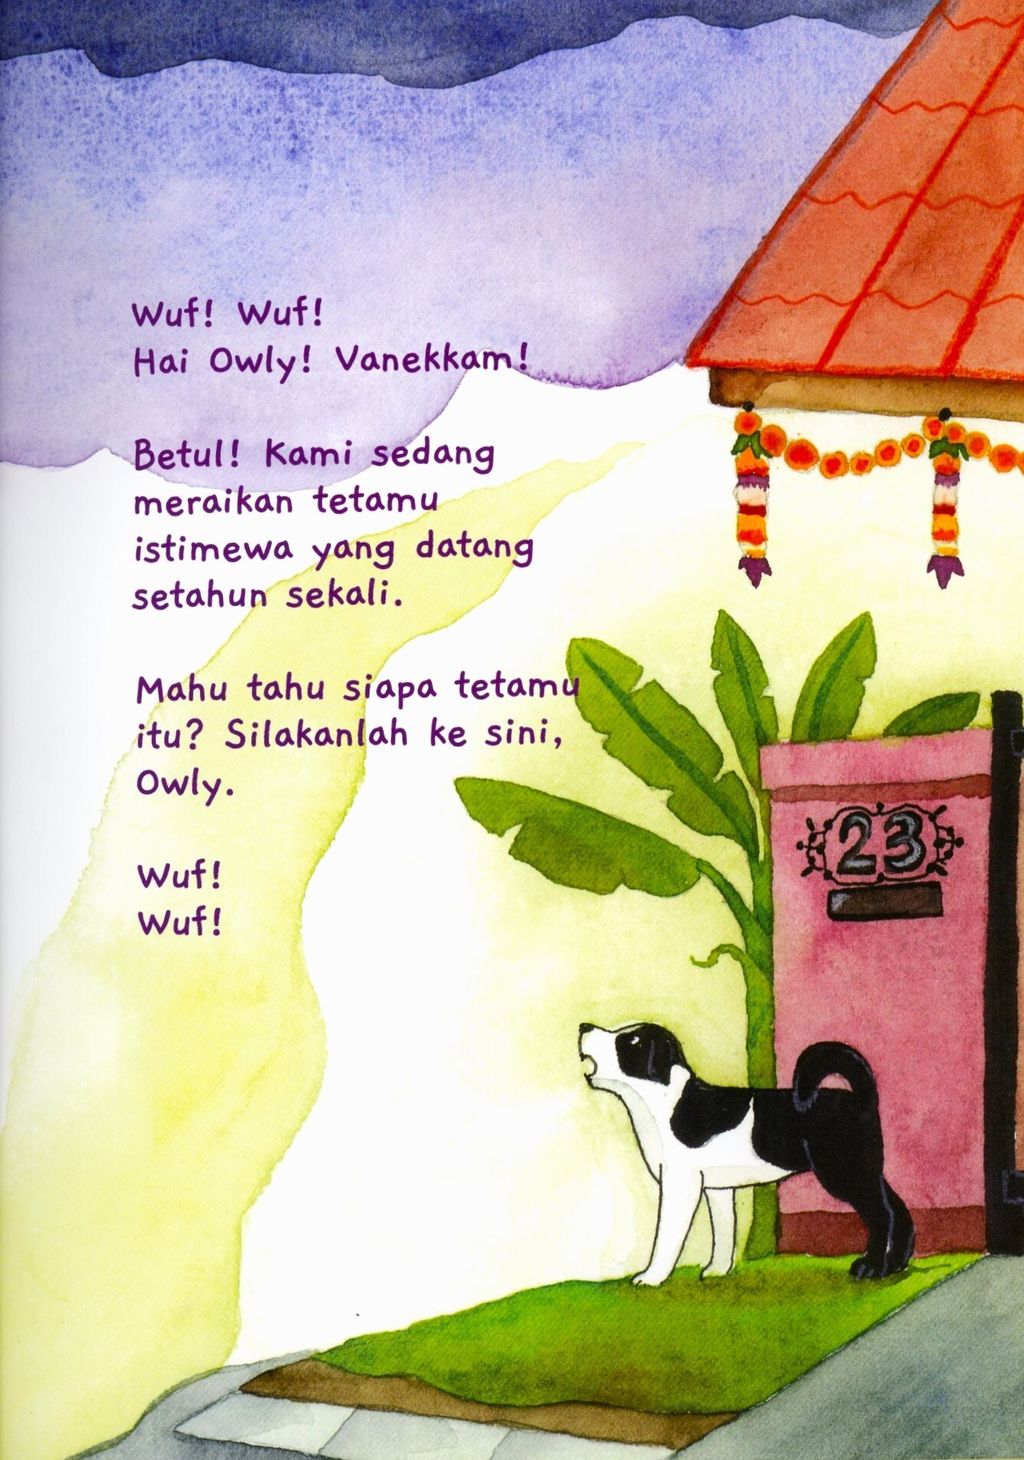 Wuf! Wuf!
Hai Owly! Vanekkam!
Betul! Kami sedang
meraikan tetamu
istimewa yang datang
setahun sekali.
Mahu tahu siapa tetamu
itu? Silakanlah ke sini,
Owly.
Wuf!
Wuf!
23